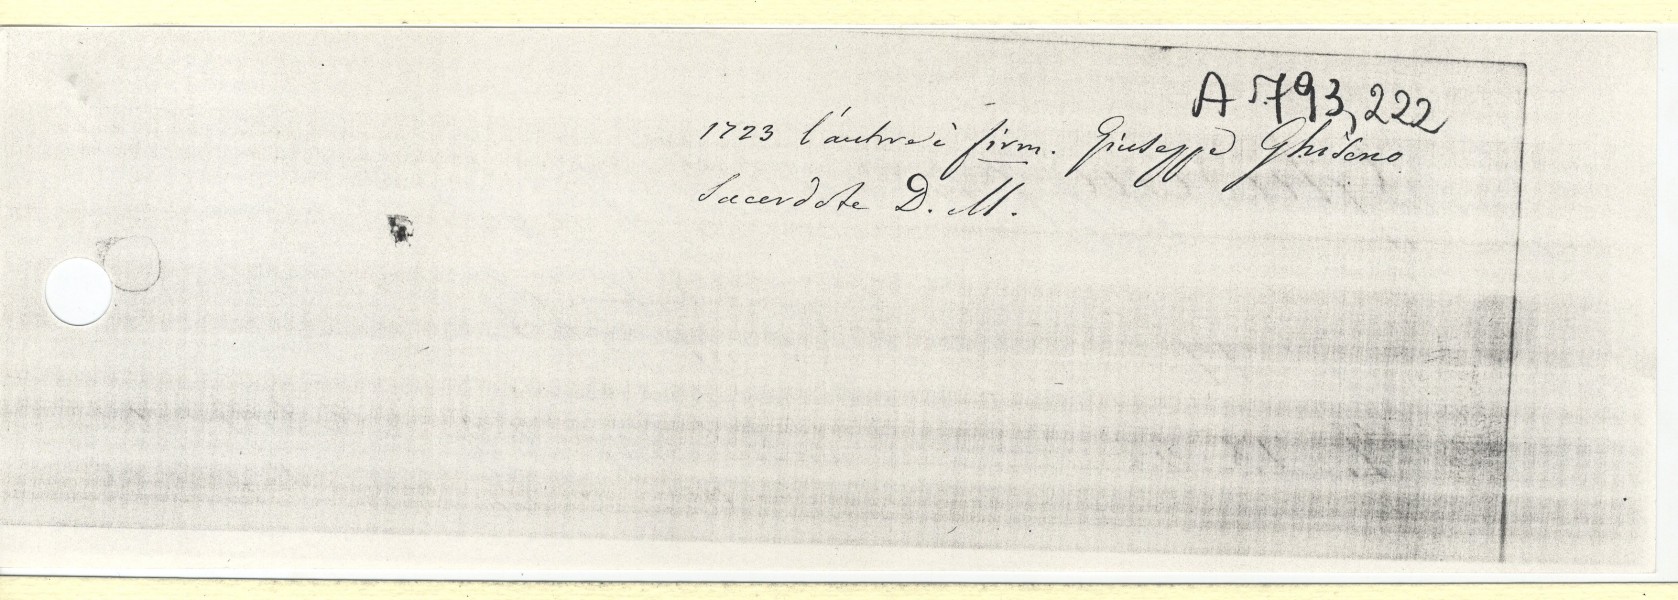 A 793,222
1723 l'autore è firm. Giuseppe Ghiseno
Sacerdote D. M.